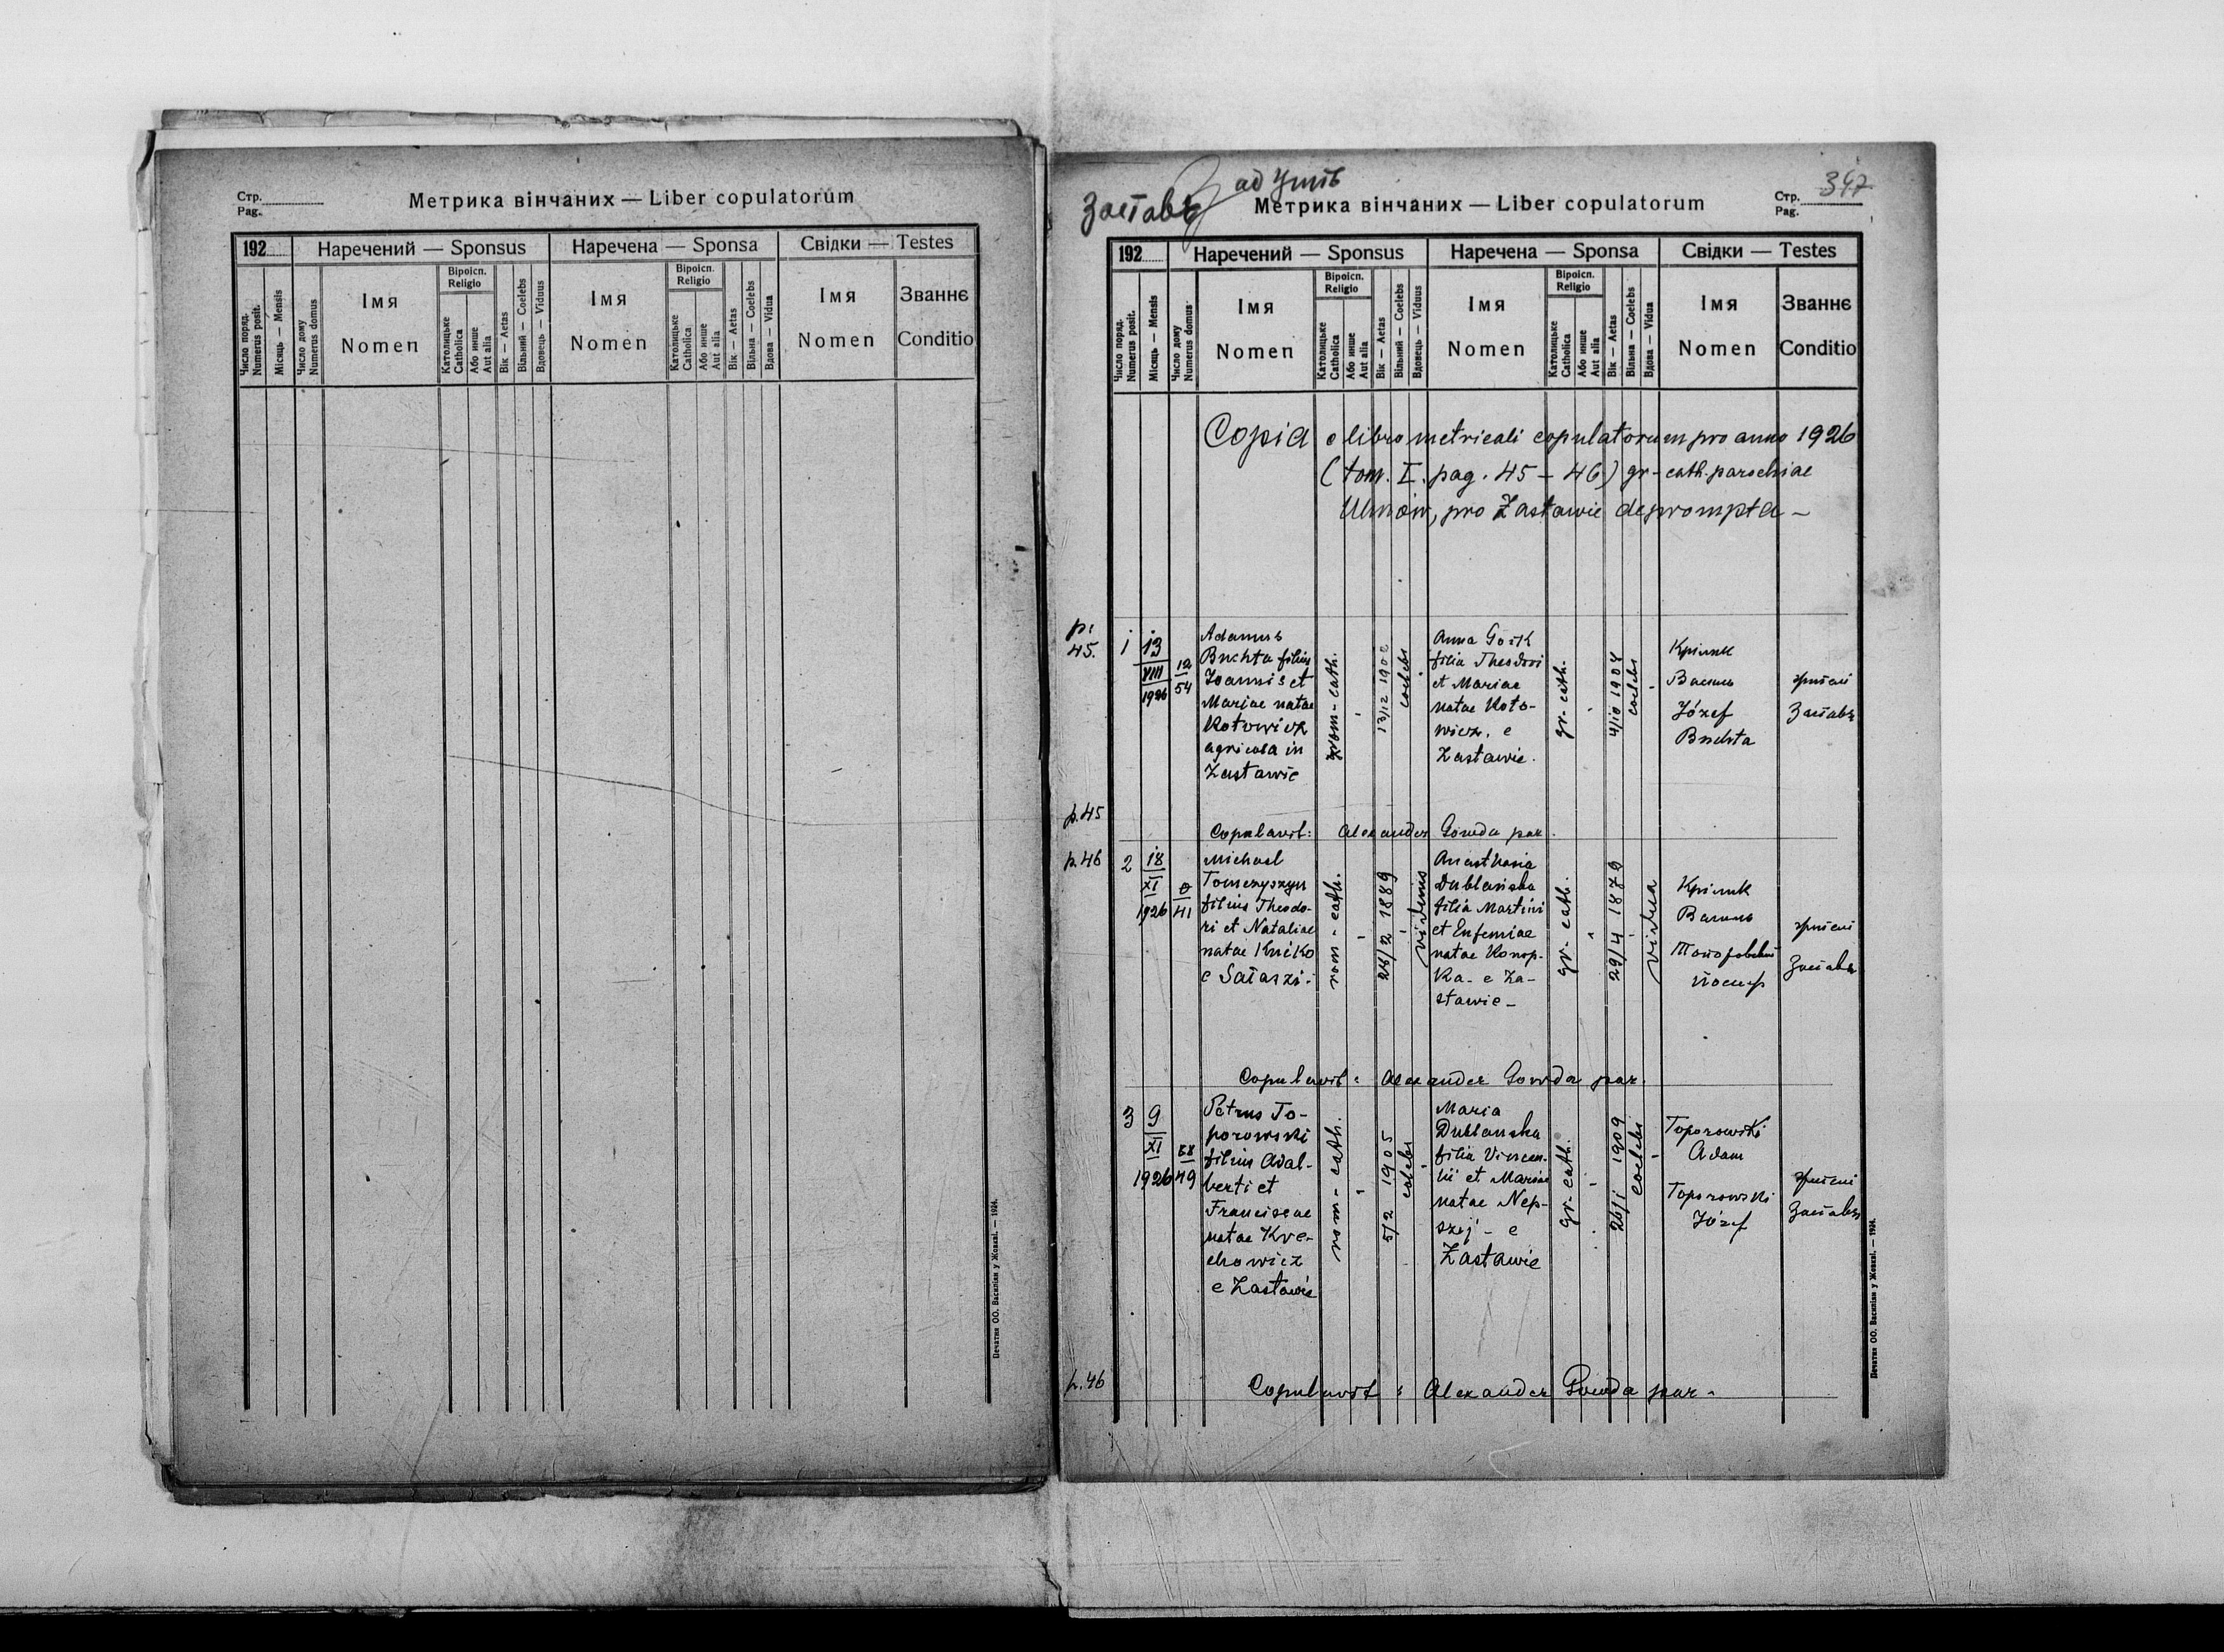 Стр.
Pag.
Метрика вінчаних — Liber copulatorum
192
Наречений — Sponsus
Наречена — Sponsa
Свідки — Testes
Число поряд.
Numerus posit.
Місяць — Mensis
Число дому
Numerus domus
Імя
Nomen
Віроісп.
Religio
Католицьке
Catholica
Або инше
Aut alia
Вік — Aetas
Вільний — Coelebs
Вдовець — Viduus
Імя
Nomen
Віроісп.
Religio
Католицьке
Catholica
Або инше
Aut alia
Вік — Aetas
Вільна — Coelebs
Вдова — Vidua
Імя
Nomen
Званнє
Conditio
Печатня ОО. Василіян у Жовкві. — 1924.
Заставє
ад Угнів
Метрика вінчаних — Liber copulatorum
Стр. 347
Pag.
192
Наречений — Sponsus
Наречена — Sponsa
Свідки — Testes
Число поряд.
Numerus posit.
Місяць — Mensis
Число дому
Numerus domus
Імя
Nomen
Віроісп.
Religio
Католицьке
Catholica
Або инше
Aut alia
Вік — Aetas
Вільний — Coelebs
Вдовець — Viduus
Імя
Nomen
Віроісп.
Religio
Католицьке
Catholica
Або инше
Aut alia
Вік — Aetas
Вільна — Coelebs
Вдова — Vidua
Імя
Nomen
Званнє
Conditio
Copia e libro metricali copulatorum pro anno 1926
(tom. I. pag. 45 – 46) gr-cath. parochiae
Uhnów, pro Zastawie deprompta –
p.
45.
1
13
VIII
1926
12
54
Adamus
Buchta filius
Joannis et
Mariae natae
Kotowicz
agricola in
Zastawie
rom-cath.
13/12 1902
coelebs
Anna Gork
filia Theodori
et Mariae
natae Koto-
wicz. e
Zastawie.
gr-cath.
4/10 1904
coelebs
Крілик
Василь
Józef
Buchta
Заставє
p. 45
Copulavit: Alexander Gowda par.
p. 46
2
18
XI
1926
0
41
Michael
Tomczyszyn
filius Theodo-
ri et Nataliae
natae Kućko
e Sałaszi.
rom-cath.
1889
viduus
Anasthasia
Dublańska
filia Martini
et Eufemiae
natae Konop-
ka - e Za-
stawie -
gr-cath.
29/4 1879
vidua
Крілик
Василь
Йосиф
Заставє
Copulavit: Alexander Gowda par.
3
9
XI
1926
68
49
Petrus To-
porowski
filius Adal-
berti et
Franciscae
natae Kre-
chowicz
e Zastawie
rom-cath.
5/2 1905
coelebs
Maria
Dublanska
filia Vincen-
tii et Mariae
natae Nep-
szej - e
Zastawie
gr-cath.
26/1 1909
coelebs
Toporowski
Adam
Toporowski
Józef
Заставє
p. 46
Copulavit: Alexander Gowda par.
Печатня ОО. Василіян у Жовкві. — 1924.